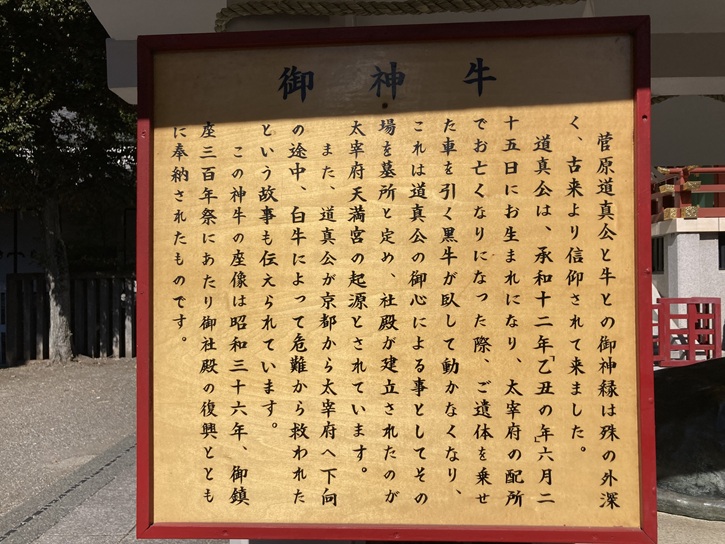 御神牛
菅原道真公と牛との御神縁は殊の外深
く、古来より信仰されて来ました。
道真公は、承和十二年「乙丑の年」六月二
十五日にお生まれになり、太宰府の配所
でお亡くなりになった際、ご遺体を乗せ
た車を引く黒牛が臥して動かなくなり、
これは道真公の御心による事としてその
場を墓所と定め、社殿が建立されたのが
太宰府天満宮の起源とされています。
また、道真公が京都から太宰府へ下向
の途中、白牛によって危難から救われた
という故事も伝えられています。
この神牛の座像は昭和三十六年、御鎮
座三百年祭にあたり御社殿の復興ととも
に奉納されたものです。